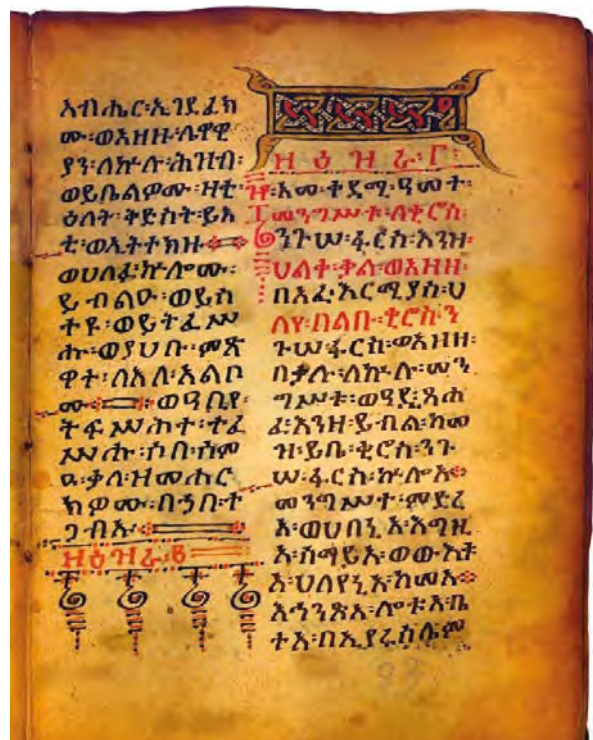 እብሔር፡ኢገደፈክ
ሙ፡ወአዘዙ፡ሌዋዊ
ያን፡ለኵሉ፡ሕዝብ፡
ወይቤልዎሙ፡ዛቲ፡
ዕለት፡ቅድስት፡ይእ
ቲ፡ወኢትተክዙ።
ወሀለፉ፡ኵሎሙ፡
ይብልዑ፡ወይስ
ተዩ፡ወይትፈሥ
ሑ፡ወያሀቡ፡ምጽ
ዋተ፡ለእለ፡አልቦ
ሙ።ወዓቢየ፡
ትፍሥሕተ፡ተፈ
ሥሑ፡ሶበ፡ሰም
ዑ፡ቃለ፡ዘመሐር
ክዎሙ፡በኃበ፡ተ
ጋብኡ።
ዘዕዝራ፡
ዘዕዝራ፡፫፡
አመ፡ቀደሚ፡ዓመት፡
መንግሥቱ፡ለቂሮስ፡
ንጉሠ፡ፋርስ፡እንዘ፡
ሀለቀ፡ቃለ፡ወእዘዘ፡
በአፈ፡ኤርሚያስ፡ሀ
ለየ፡በልቡ፡ቂሮስ፡ን
ጉሠ፡ፋርስ፡ወአዘዘ፡
በቃሉ፡ለኵሉ፡መን
ግሥቱ፡ወዓዲ፡ጸሐ
ፈ፡እንዘ፡ይብል፡ከመ
ዝ፡ይቤ፡ቂሮስ፡ንጉ
ሠ፡ፋርስ፡ኵሎ፡አ።
መንግሥተ፡ምድረ
አ፡ወሀበኒ፡አ፡እግዚ
አ፡ሰማይ፡አ፡ወውእቱ
አ፡ሀለየኒ፡አ፡ከመ፡አ።
እሕንጽ፡አ፡ሎቱ፡አ፡ቤ
ተ፡አ፡በኢየሩሳሌም